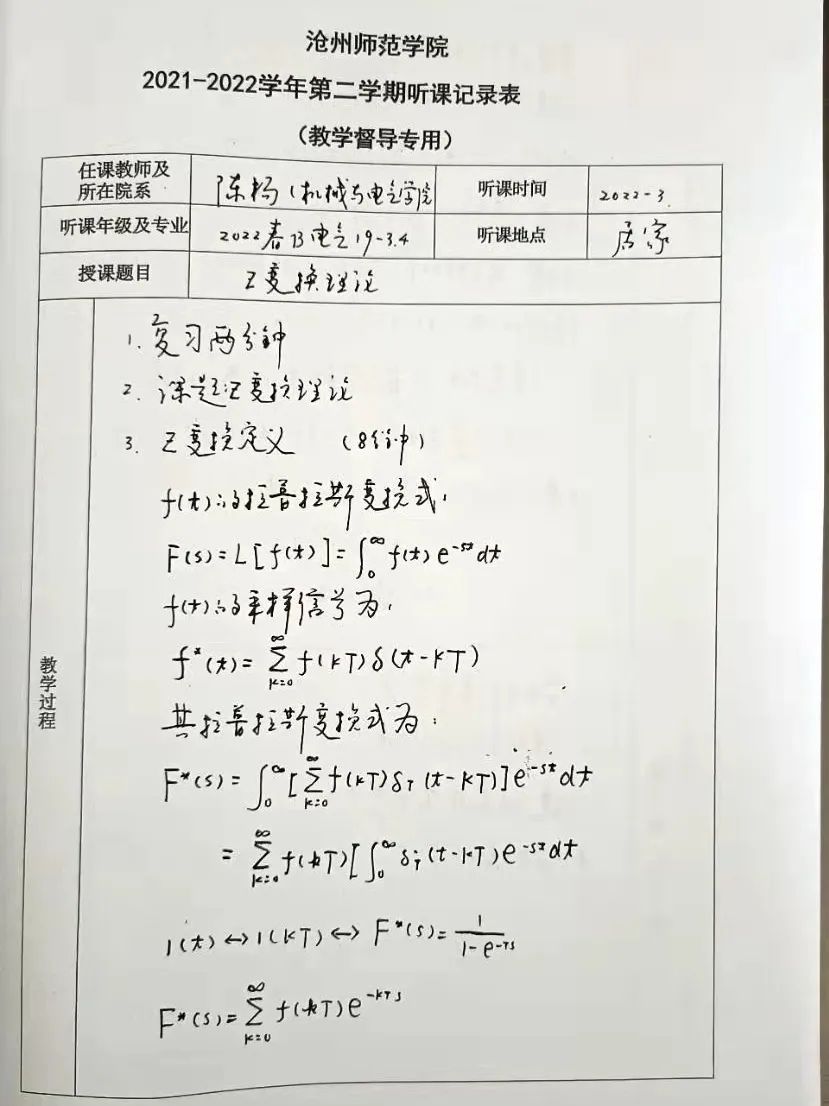 沧州师范学院
2021-2022学年第二学期听课记录表
（教学督导专用）
任课教师及所在院系 陈杨（机械与电气学院 听课时间 2022-3.
听课年级及专业 2022春B电气19-3.4 听课地点 居家
授课题目 Z变换理论
教学过程
1. 复习两分钟
2. 课题:Z变换理论
3. Z变换定义 （8分钟）
f(t)的拉普拉斯变换式,
F(s)=L[f(t)]=∫₀^∞ f(t)e^{-st}dt
f(t)的采样信号为,
f*(t)=∑_{k=0}^∞ f(kT)δ(t-kT)
其拉普拉斯变换式为:
F*(s)=∫₀^∞[∑_{k=0}^∞ f(kT)δ_T(t-kT)]e^{-st}dt
=∑_{k=0}^∞ f(kT)[∫₀^∞ δ_T(t-kT)e^{-st}dt
1(t)↔1(kT)↔F*(s)=1/(1-e^{-Ts})
F*(s)=∑_{k=0}^∞ f(kT)e^{-kTs}